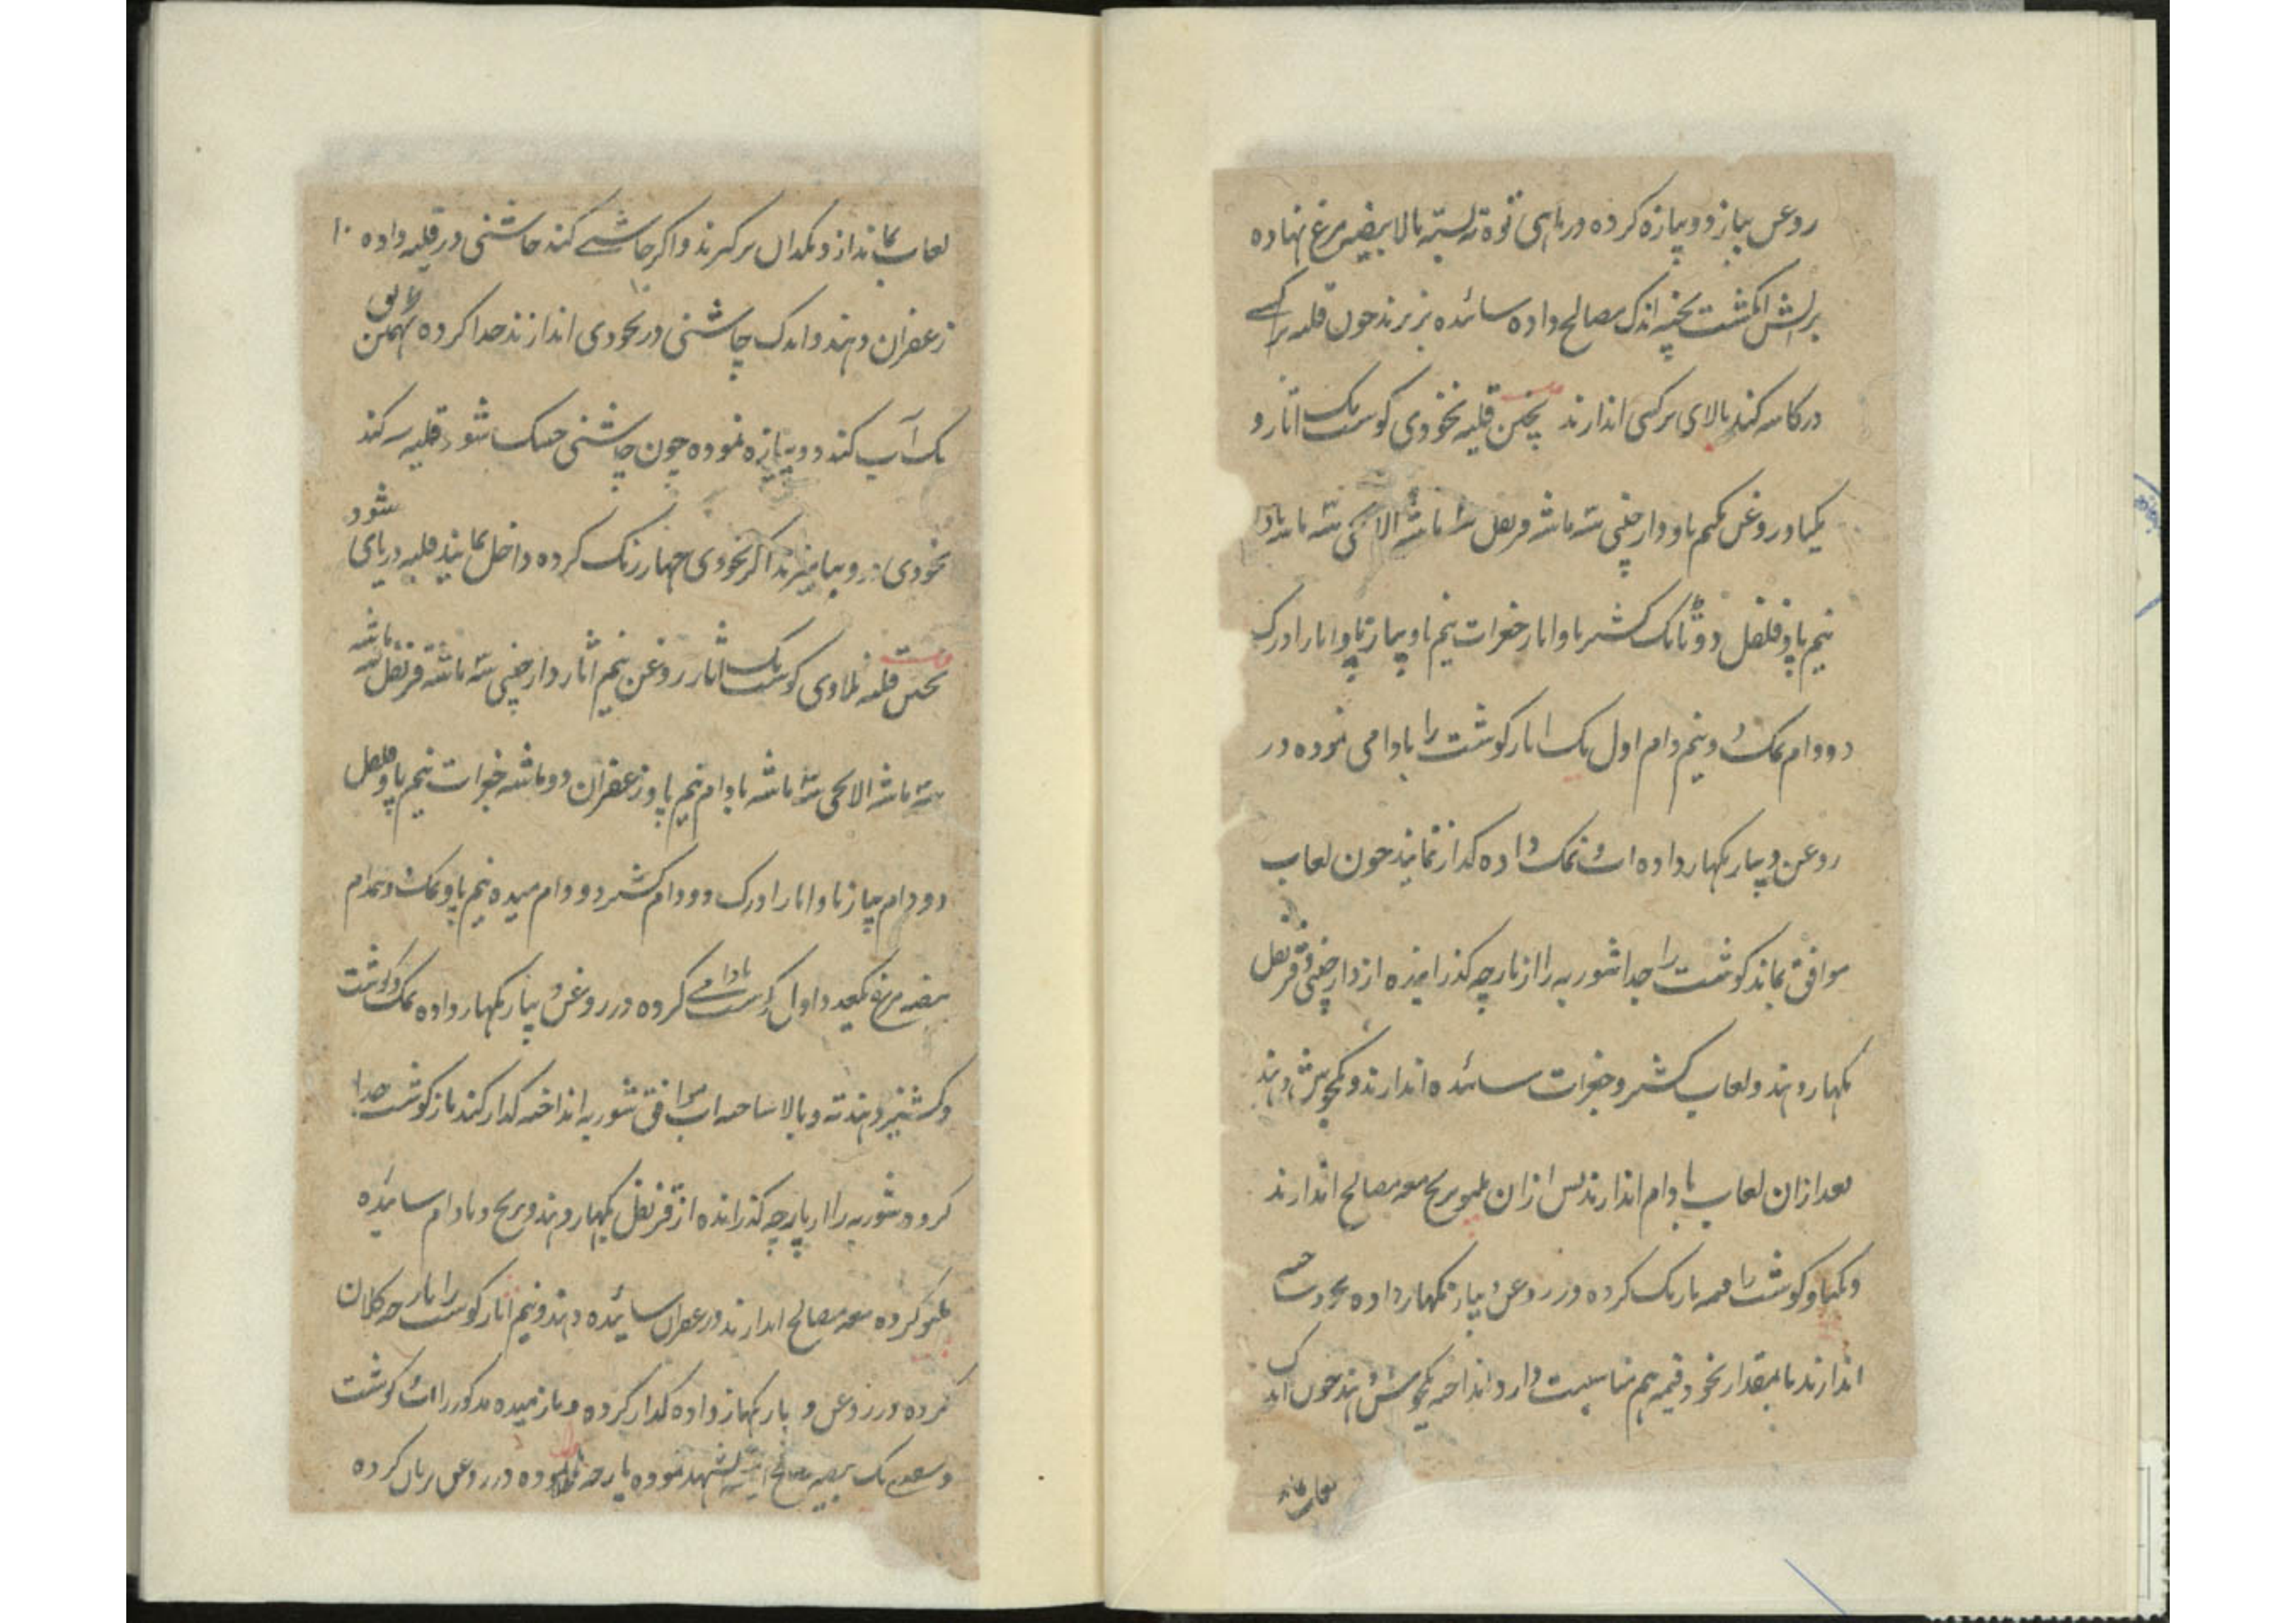 روغن پیاز دوپیازه کرده در ماهی توه ته بسته بالا بیضه مرغ نهاده
بر آتش انگشت پخته اندک مصالح داده سائده بر برند چون قلیه
در کاسه کند بالای برکی اندازند پختن قلیه نخودی گوشت یک آثار و
یکپاو روغن نیم پاو دارچینی سه ماشه قرنفل سه ماشه الاچی سه ماشه بادام
نیم پاو فلفل دو تانک کشنیز پاو آثار جغرات نیم پاو پیاز پاو آثار ادرک
دو دام نمک دو نیم دام اول یک آثار گوشت را بادامی نموده در
روغن و پیاز بگهار داده آب نمک داده گداز نمایند چون لعاب
موافق بماند گوشت را جدا شوربه را از پارچه گذرانیده از دارچینی و قرنفل
بگهار دهند و لعاب کشنیز و جغرات سائده اندازند و یکجوش دهند
بعد از آن لعاب بادام اندازند پس از آن بلمو برنج معه مصالح اندازند
و یکپاو گوشت را قیمه باریک کرده در روغن پیاز بگهار داده نخود ساخته
اندازند تا بمقدار نخود قیمه هم مناسبت دارد انداخته یکجوش دهند چون اندک
لعاب بماند
لعاب بماند از دیگدان برگیرند و اگر چاشنی کنند چاشنی در قلیه داده
زعفران دهند و اندک چاشنی در نخودی اندازند جدا کرده بهمین طریق
یک آب کند دوپیازه نموده چون چاشنی خشک شود قلیه سر کند
نخودی درو بیامیزند اگر نخودی چهار رنگ کرده داخل نمایند قلیه دریای شود
پختن قلیه نلاوی گوشت یک آثار روغن نیم آثار دارچینی سه ماشه قرنفل سه ماشه
سه ماشه الاچی سه ماشه بادام نیم پاو زعفران دو ماشه جغرات نیم پاو فلفل
دو دام پیاز پاو آثار ادرک دو دام کشنیز دو دام میده نیم پاو نمک دو نیمدام
بیضه مرغ یکعدد اول گوشت بادامی کرده در روغن و پیاز بگهار داده نمک و گوشت
و کشنیز دهند ته و بالا ساخته آب موافق شوربه انداخته گداز کنند باز گوشت جدا
کرده شوربه را از پارچه گذرانده از قرنفل بگهار دهند و برنج و بادام سائیده
بلمو کرده معه مصالح اندازند و زعفران سائیده دهند و نیم آثار گوشت را پارچه کلان
کرده در روغن و پیاز بگهار داده گداز کرده و باز میده مذکور را آب گوشت
و سفیدی یک بیضه مرغ نموده پارچه در روغن بریان کرده